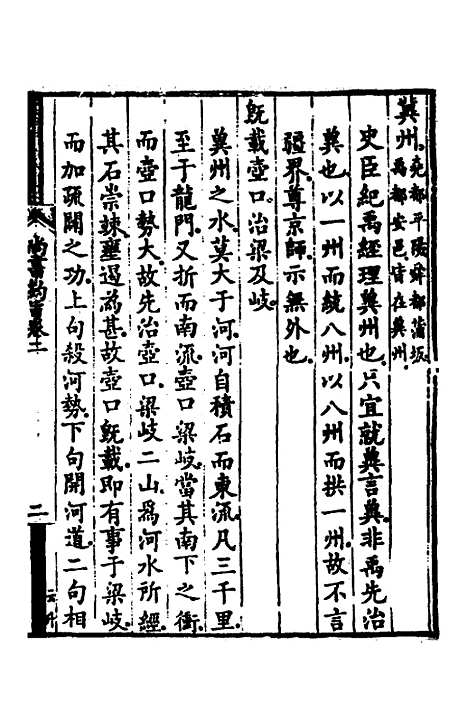 冀州。堯都平陽舜都蒲坂禹都安邑皆在冀州。
史臣紀禹經理冀州也。只宜就冀言冀。非禹先治
冀也。以一州而統八州。以八州而拱一州。故不言
疆界。尊京師。示無外也。
既載壺口。治梁及岐。
冀州之水。莫大于河。河自積石而東流。凡三千里
至于龍門。又折而南流。壺口梁岐。當其南下之衝。
而壺口勢大。故先治壺口。梁岐二山。為河水所經
其石崇竦壅遏為甚。故壺口既載。即有事于梁岐。
而加疏闢之功。上句殺河勢。下句開河道。二句相
尚書約言卷二
二